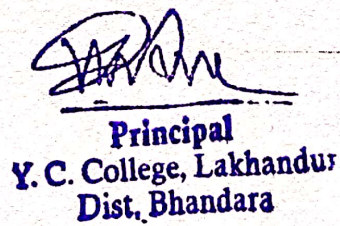 Principal
Y. C. College, Lakhandur
Dist. Bhandara